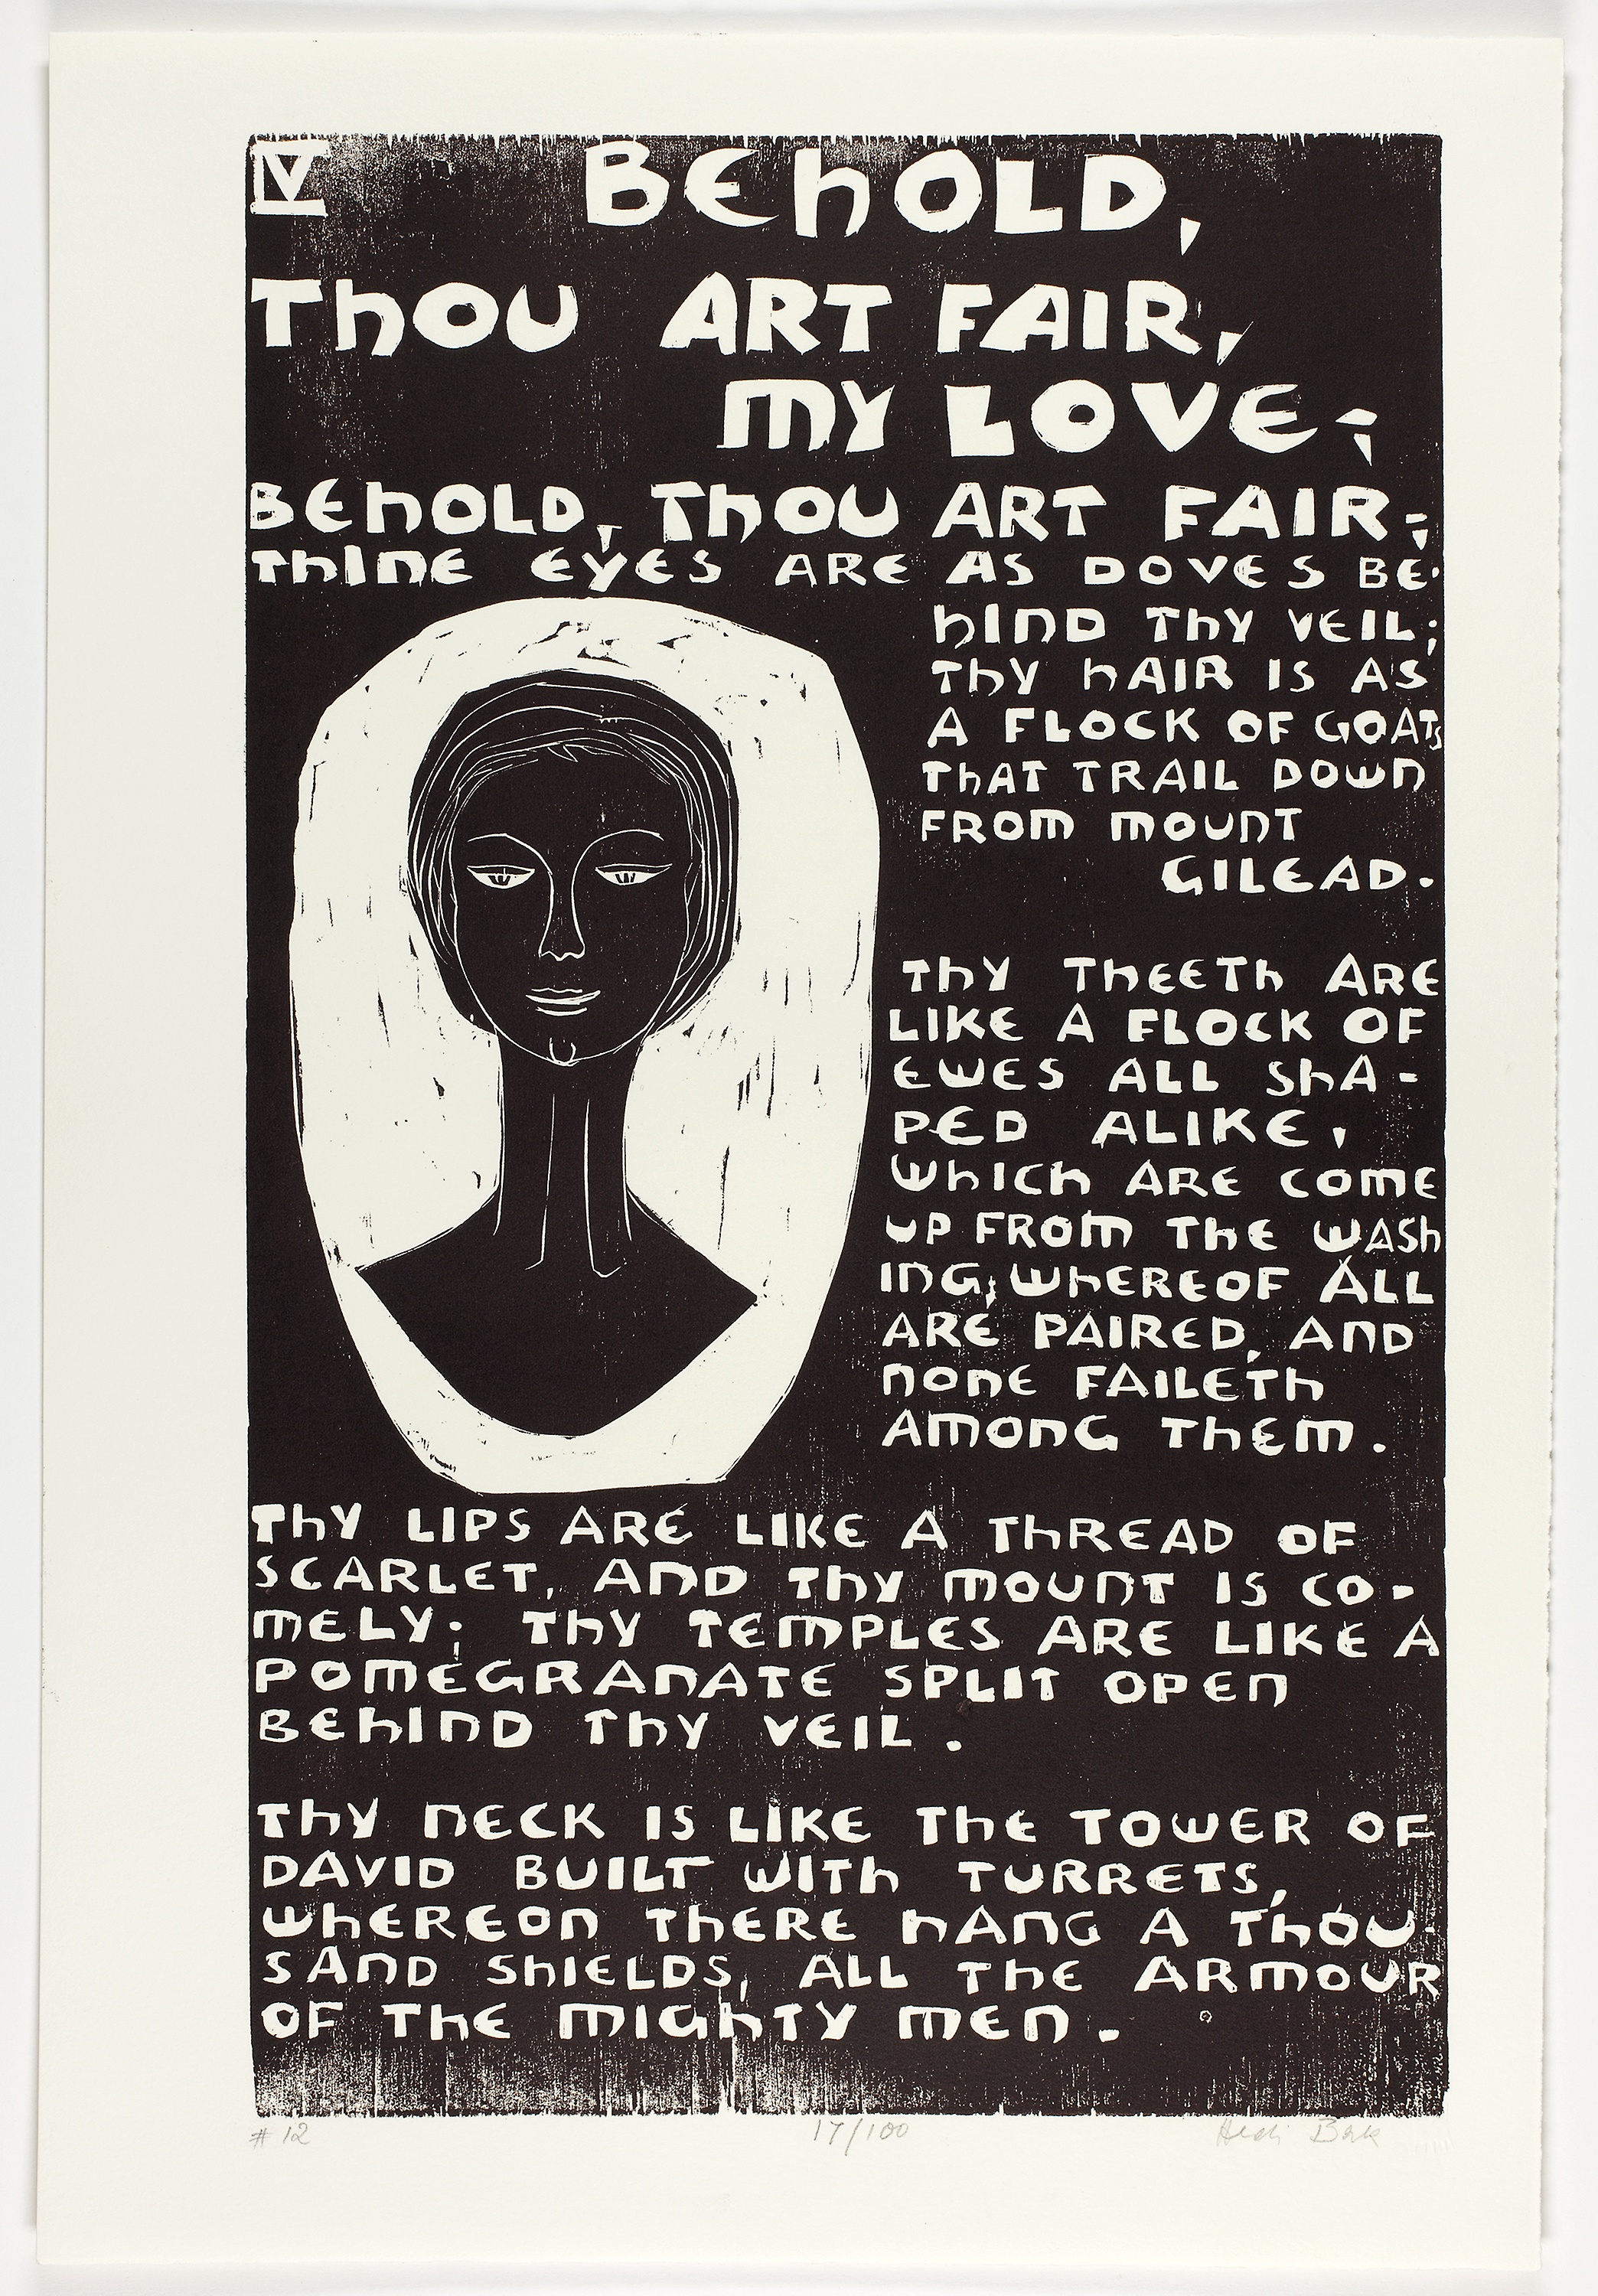 IV BEhOLD,
ThOU ART FAIR,
MY LOVE;
BEhOLD, ThOU ART FAIR;
ThINE EYES ARE AS DOVES BE-
hIND ThY VEIL;
ThY hAIR IS AS
A FLOCK OF GOATS
ThAT TRAIL DOWN
FROM MOUNT
GILEAD.
ThY ThEETh ARE
LIKE A FLOCK OF
EWES ALL ShA-
PED ALIKE,
WhICh ARE COME
UP FROM ThE WASh
ING, WhEREOF ALL
ARE PAIRED, AND
NONE FAILETh
AMONG ThEM.
ThY LIPS ARE LIKE A ThREAD OF
SCARLET, AND ThY MOUNT IS CO-
MELY; ThY TEMPLES ARE LIKE A
POMEGRANATE SPLIT OPEN
BEhIND ThY VEIL.
ThY NECK IS LIKE ThE TOWER OF
DAVID BUILT WITh TURRETS,
WhEREON ThERE hANG A ThOU-
SAND ShIELDS, ALL ThE ARMOUR
OF ThE MIGhTY MEN.
# 12 17/100